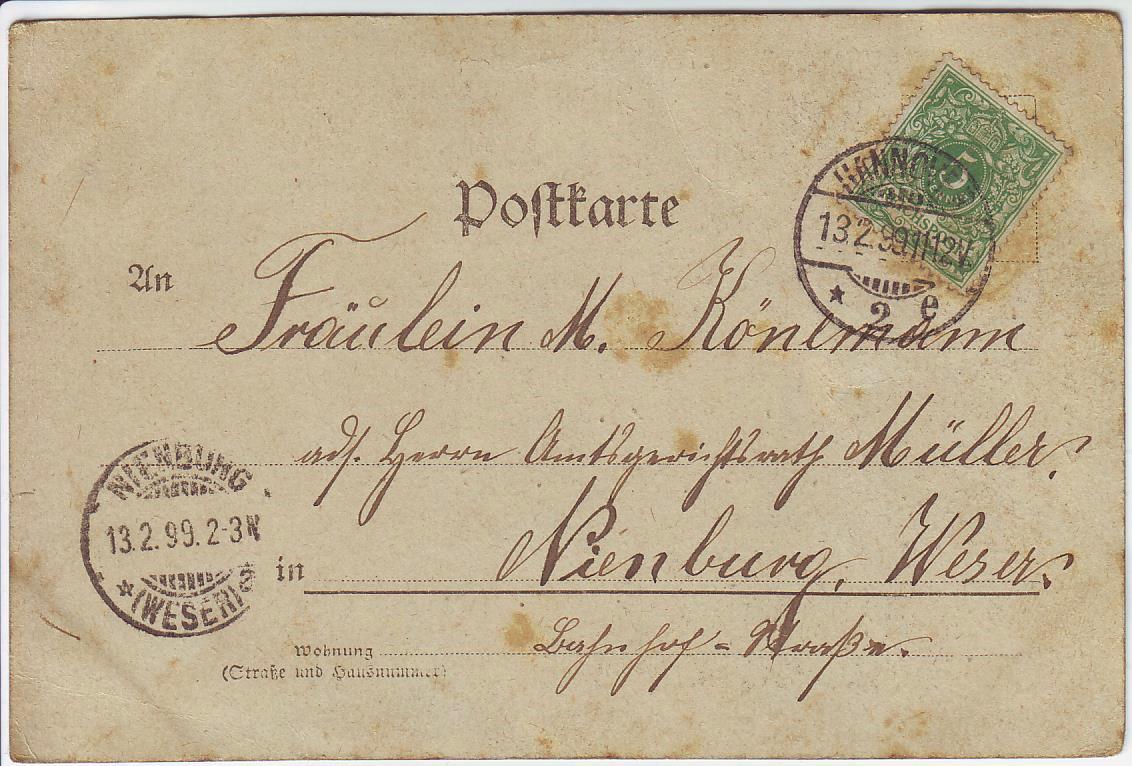 Postkarte
5
HANNOVER
13.2.99.11-12V.
* 2 e
An
Fräulein M. Könemann
adr. Herrn Amtsgerichtsrath Müller.
NIENBURG
13.2.99.2-3N
* (WESER)
in Nienburg, Weser.
Wohnung
(Straße und Hausnummer)
Bahnhof-Straße.